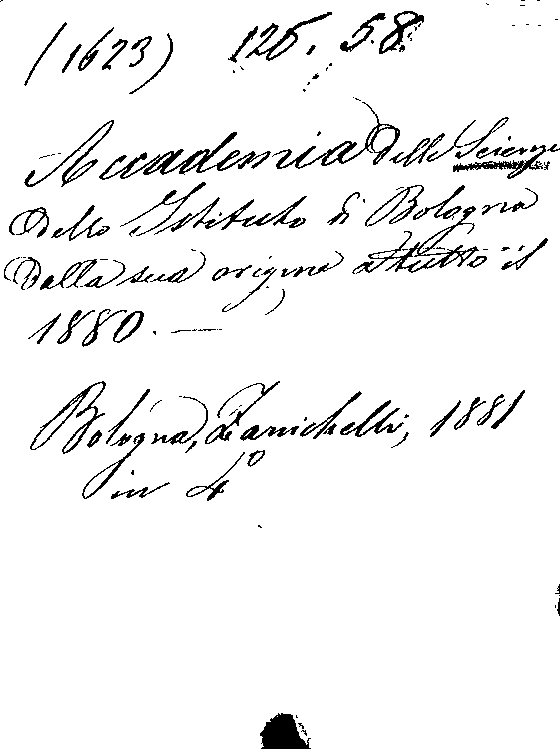 (1623) 126. 5.8.
Accademia delle Scienze
dello Istituto di Bologna
dalla sua origine a tutto il
1880. —
Bologna, Zanichelli, 1881
in 4°